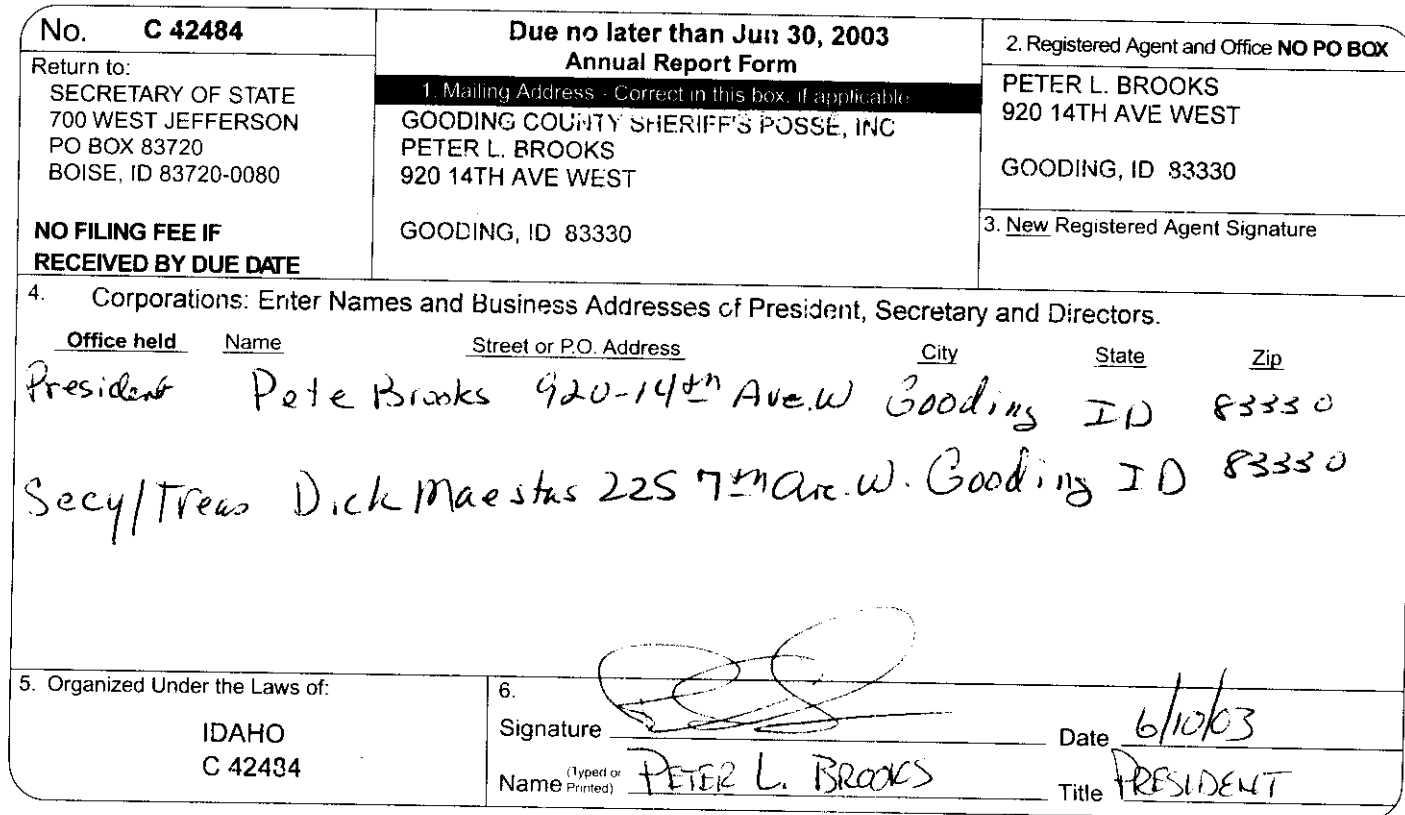 No. C 42484
Return to:
SECRETARY OF STATE
700 WEST JEFFERSON
PO BOX 83720
BOISE, ID 83720-0080
NO FILING FEE IF
RECEIVED BY DUE DATE
Due no later than Jun 30, 2003
Annual Report Form
1. Mailing Address - Correct in this box, if applicable
GOODING COUNTY SHERIFF'S POSSE, INC
PETER L. BROOKS
920 14TH AVE WEST
GOODING, ID 83330
2. Registered Agent and Office NO PO BOX
PETER L. BROOKS
920 14TH AVE WEST
GOODING, ID 83330
3. New Registered Agent Signature
4. Corporations: Enter Names and Business Addresses of President, Secretary and Directors.
Office held Name Street or P.O. Address City State Zip
President Pete Brooks 920-14th Ave. W Gooding ID 83330
Secy/Treas Dick Maestas 225 7th Ave. W. Gooding ID 83330
5. Organized Under the Laws of:
IDAHO
C 42484
6.
Signature Date 6/10/03
Name (Typed or Printed) PETER L. BROOKS Title PRESIDENT